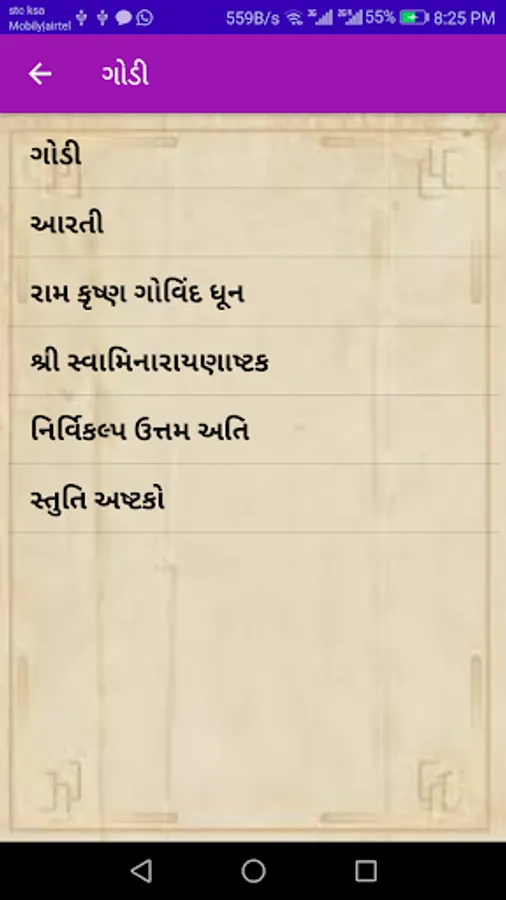 stc ksa
Mobily|airtel
559B/s 3G 2G 55% 8:25 PM
ગોડી
ગોડી
આરતી
રામ કૃષ્ણ ગોવિંદ ધૂન
શ્રી સ્વામિનારાયણાષ્ટક
નિર્વિકલ્પ ઉત્તમ અતિ
સ્તુતિ અષ્ટકો